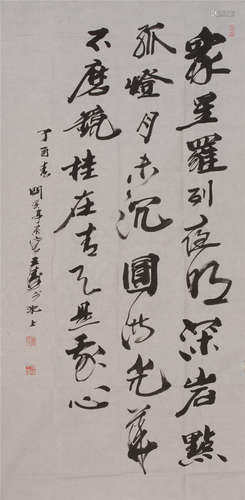 众星罗列夜明深岩點
孤燈月未沉圓滿光華
不磨镜挂在青天是我心
丁酉春